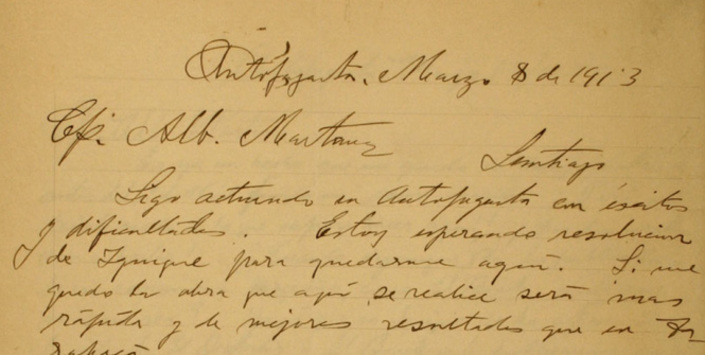 Antofagasta, Marzo 8 de 1913
Cp. Alb. Martínez
Santiago
Sigo actuando en Antofagasta con éxitos
y dificultades. Estoy esperando resolución
de Iquique para quedarme aquí. Si me
quedo la obra que aquí se realice será mas
rápida y de mejores resultados que en Ta
rapacá